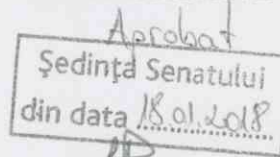 Aprobat
Ședința Senatului
din data 18.01.2018